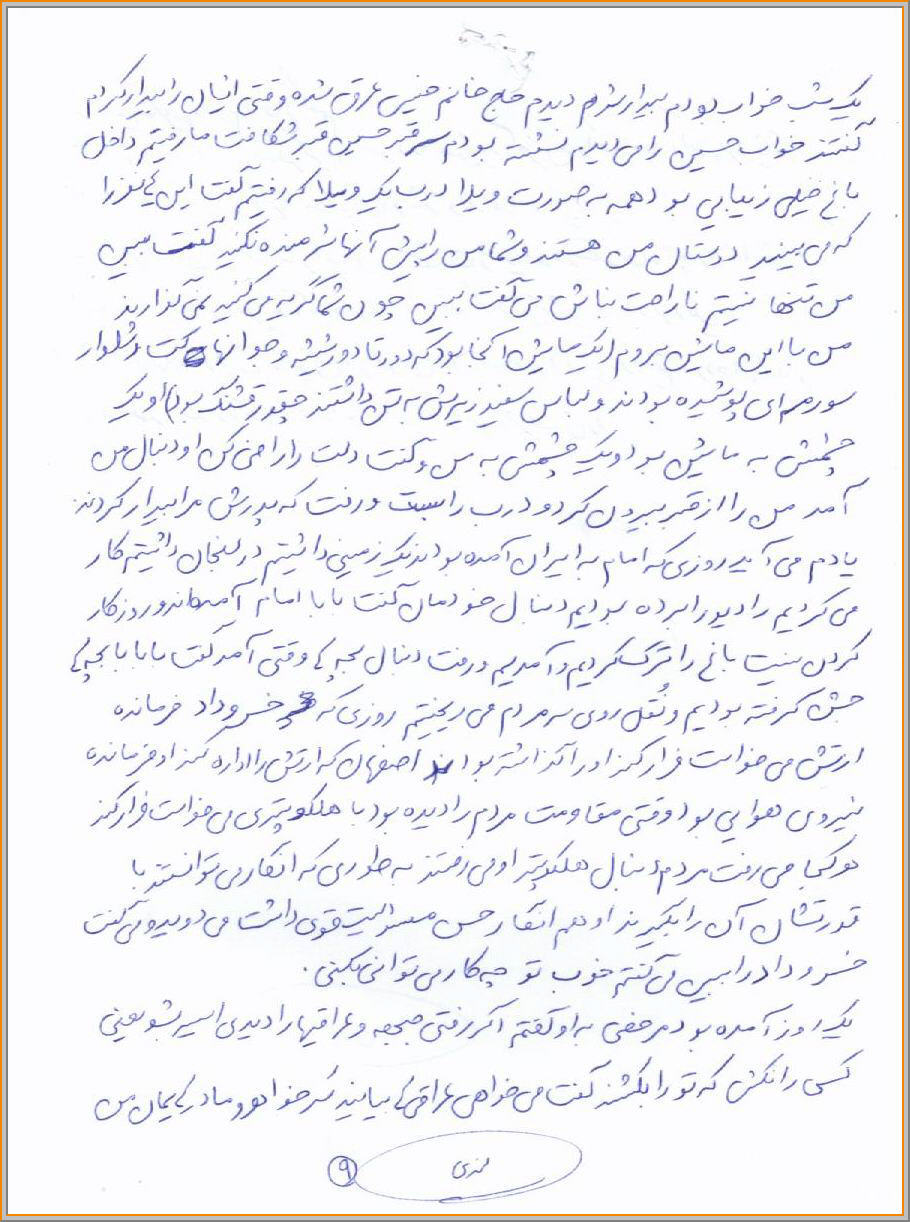 یک شب خواب بودم بیدار شدم دیدم حاج خانم خیس عرق شده وقتی ایشان را بیدار کردم
گفتند خواب حسین را می دیدم نشسته بودم سر قبر حسین قبر شکافت ما رفتیم داخل
باغ خیلی زیبایی بود همه به صورت ویلا درب یک ویلا که رفتیم گفت این را
که می بینید دوستان من هستند و شما من را پیش آنها شرمنده نکنید گفت ببین
من تنها نیستم ناراحت نباش می گفت ببین چون شما گریه می کنید نمی گذارید
من با این ماشین بروم (یک ماشین آنجا بود که دور تا دور شیشه و جوانها کت و شلوار
سورمه ای پوشیده بودند و لباس سفید زیرش به تن داشتند چقدر قشنگ بود) او یک
چشمش به ماشین بود و یک چشمش به من و گفت دلت را راضی کن او دنبال من
آمد من را از قبر بیرون کرد و درب را بست و رفت که پدرش مرا بیدار کردند
یادم می آید روزی که امام به ایران آمده بودند یک زمینی داشتیم در لنجان داشتیم کار
می کردیم رادیو را برده بودیم دنبال خودمان گفت بابا امام آمده اند و روز کار
کردن نیست باغ را ترک کردیم و آمدیم و رفت دنبال بچه ها وقتی آمد گفت بابا با بچه ها
جشن گرفته بودیم و نُقل روی سر مردم می ریختیم روزی که خسروداد فرمانده
ارتش می خواست فرار کند او را گذاشته بودند اصفهان که ارتش را اداره کند او فرمانده
نیروی هوایی بود وقتی مقاومت مردم را دیده بود با هلکوپتری می خواست فرار کند
هر کجا می رفت مردم دنبال هلکوپتر او می رفتند به طوری که انگار می توانستند با
قدرتشان آن را بگیرند او هم انگار حس مسئولیت قوی داشت می دوید و می گفت
خسروداد را ببین می گفتم خوب تو چه کار می توانی بکنی.
یک روز آمده بود مرخصی به او گفتم اگر رفتی جبهه و عراقیها را دیدی اسیر بشو یعنی
کسی را نکش که تو را بکشند گفت می خواهی عراقی ها بیایند سر خواهر و مادرهایمان من
۹